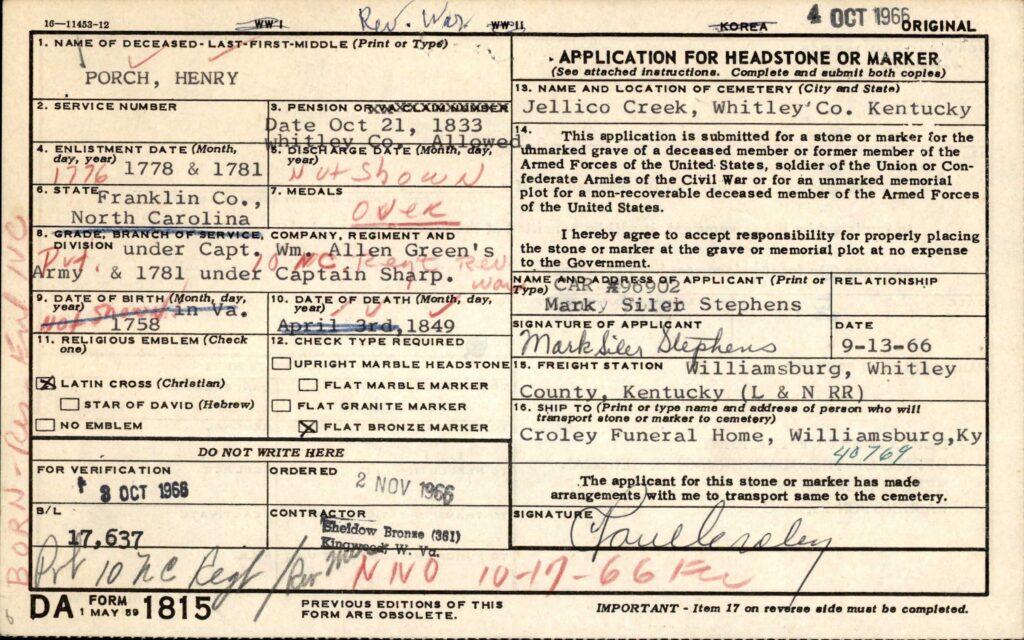 16—11453-12
WW I
Rev. War
WW II
KOREA
4 OCT 1966
ORIGINAL
1. NAME OF DECEASED-LAST-FIRST-MIDDLE (Print or Type)
PORCH, HENRY
2. SERVICE NUMBER
3. PENSION OR VA CLAIM NUMBER
Date Oct 21, 1833
Whitley Co. Allowed
4. ENLISTMENT DATE (Month, day, year)
1776 1778 & 1781
5. DISCHARGE DATE (Month, day, year)
Not Shown
6. STATE
Franklin Co.,
North Carolina
7. MEDALS
over
8. GRADE, BRANCH OF SERVICE, COMPANY, REGIMENT AND DIVISION
under Capt. Wm. Allen Green's
Pvt. 10 NC Regt Rev War
Army & 1781 under Captain Sharp.
9. DATE OF BIRTH (Month, day, year)
Not Shown
in Va.
1758
10. DATE OF DEATH (Month, day, year)
April 3rd, 1849
11. RELIGIOUS EMBLEM (Check one)
LATIN CROSS (Christian)
STAR OF DAVID (Hebrew)
NO EMBLEM
12. CHECK TYPE REQUIRED
UPRIGHT MARBLE HEADSTONE
FLAT MARBLE MARKER
FLAT GRANITE MARKER
FLAT BRONZE MARKER
DO NOT WRITE HERE
FOR VERIFICATION
3 OCT 1966
ORDERED
2 NOV 1966
B/L
17,637
CONTRACTOR
Sheldow Bronze (361)
Kingwood, W. Va.
Pvt 10 NC Regt / Rev War
NNO 10-17-66
DA FORM 1 MAY 59 1815
PREVIOUS EDITIONS OF THIS
FORM ARE OBSOLETE.
APPLICATION FOR HEADSTONE OR MARKER
(See attached instructions. Complete and submit both copies)
13. NAME AND LOCATION OF CEMETERY (City and State)
Jellico Creek, Whitley Co. Kentucky
14. This application is submitted for a stone or marker for the
unmarked grave of a deceased member or former member of the
Armed Forces of the United States, soldier of the Union or Con-
federate Armies of the Civil War or for an unmarked memorial
plot for a non-recoverable deceased member of the Armed Forces
of the United States.
I hereby agree to accept responsibility for properly placing
the stone or marker at the grave or memorial plot at no expense
to the Government.
NAME AND ADDRESS OF APPLICANT (Print or Type)
CAR #96902
Mark Siler Stephens
RELATIONSHIP
SIGNATURE OF APPLICANT
Mark Siler Stephens
DATE
9-13-66
15. FREIGHT STATION
Williamsburg, Whitley
County, Kentucky (L & N RR)
16. SHIP TO (Print or type name and address of person who will
transport stone or marker to cemetery)
Croley Funeral Home, Williamsburg,Ky
40769
The applicant for this stone or marker has made
arrangements with me to transport same to the cemetery.
SIGNATURE
Paul Croley
IMPORTANT - Item 17 on reverse side must be completed.